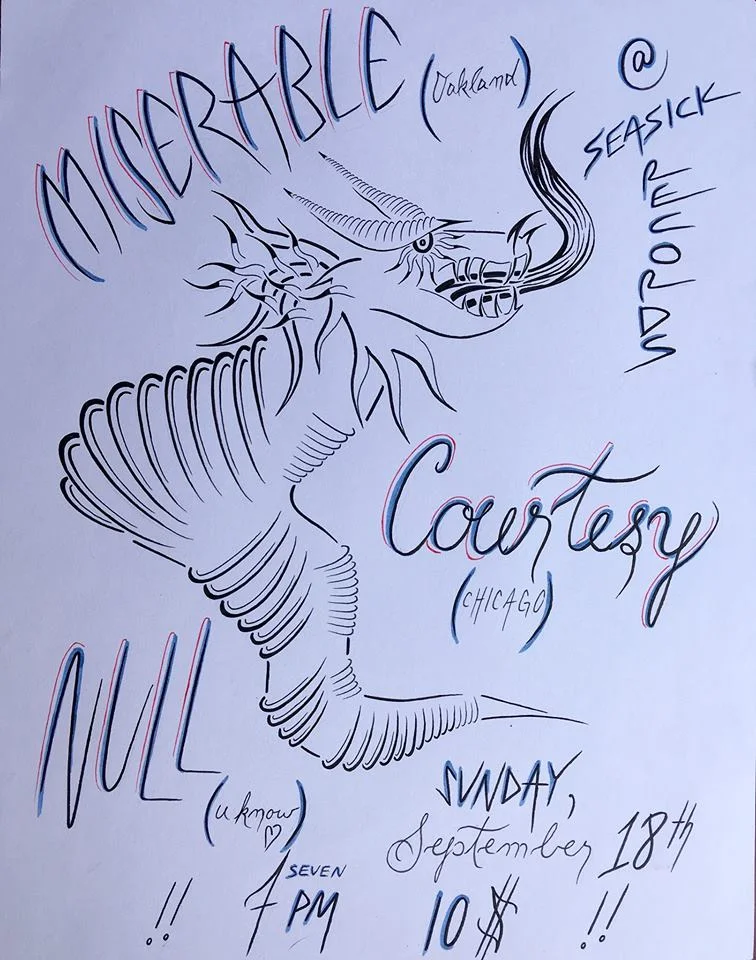 MISERABLE (Oakland)
@
SEASICK
RECORDS
Courtesy
(CHICAGO)
NULL
(u know ♡)
SUNDAY,
September 18th
!! 7 SEVEN PM 10$ !!